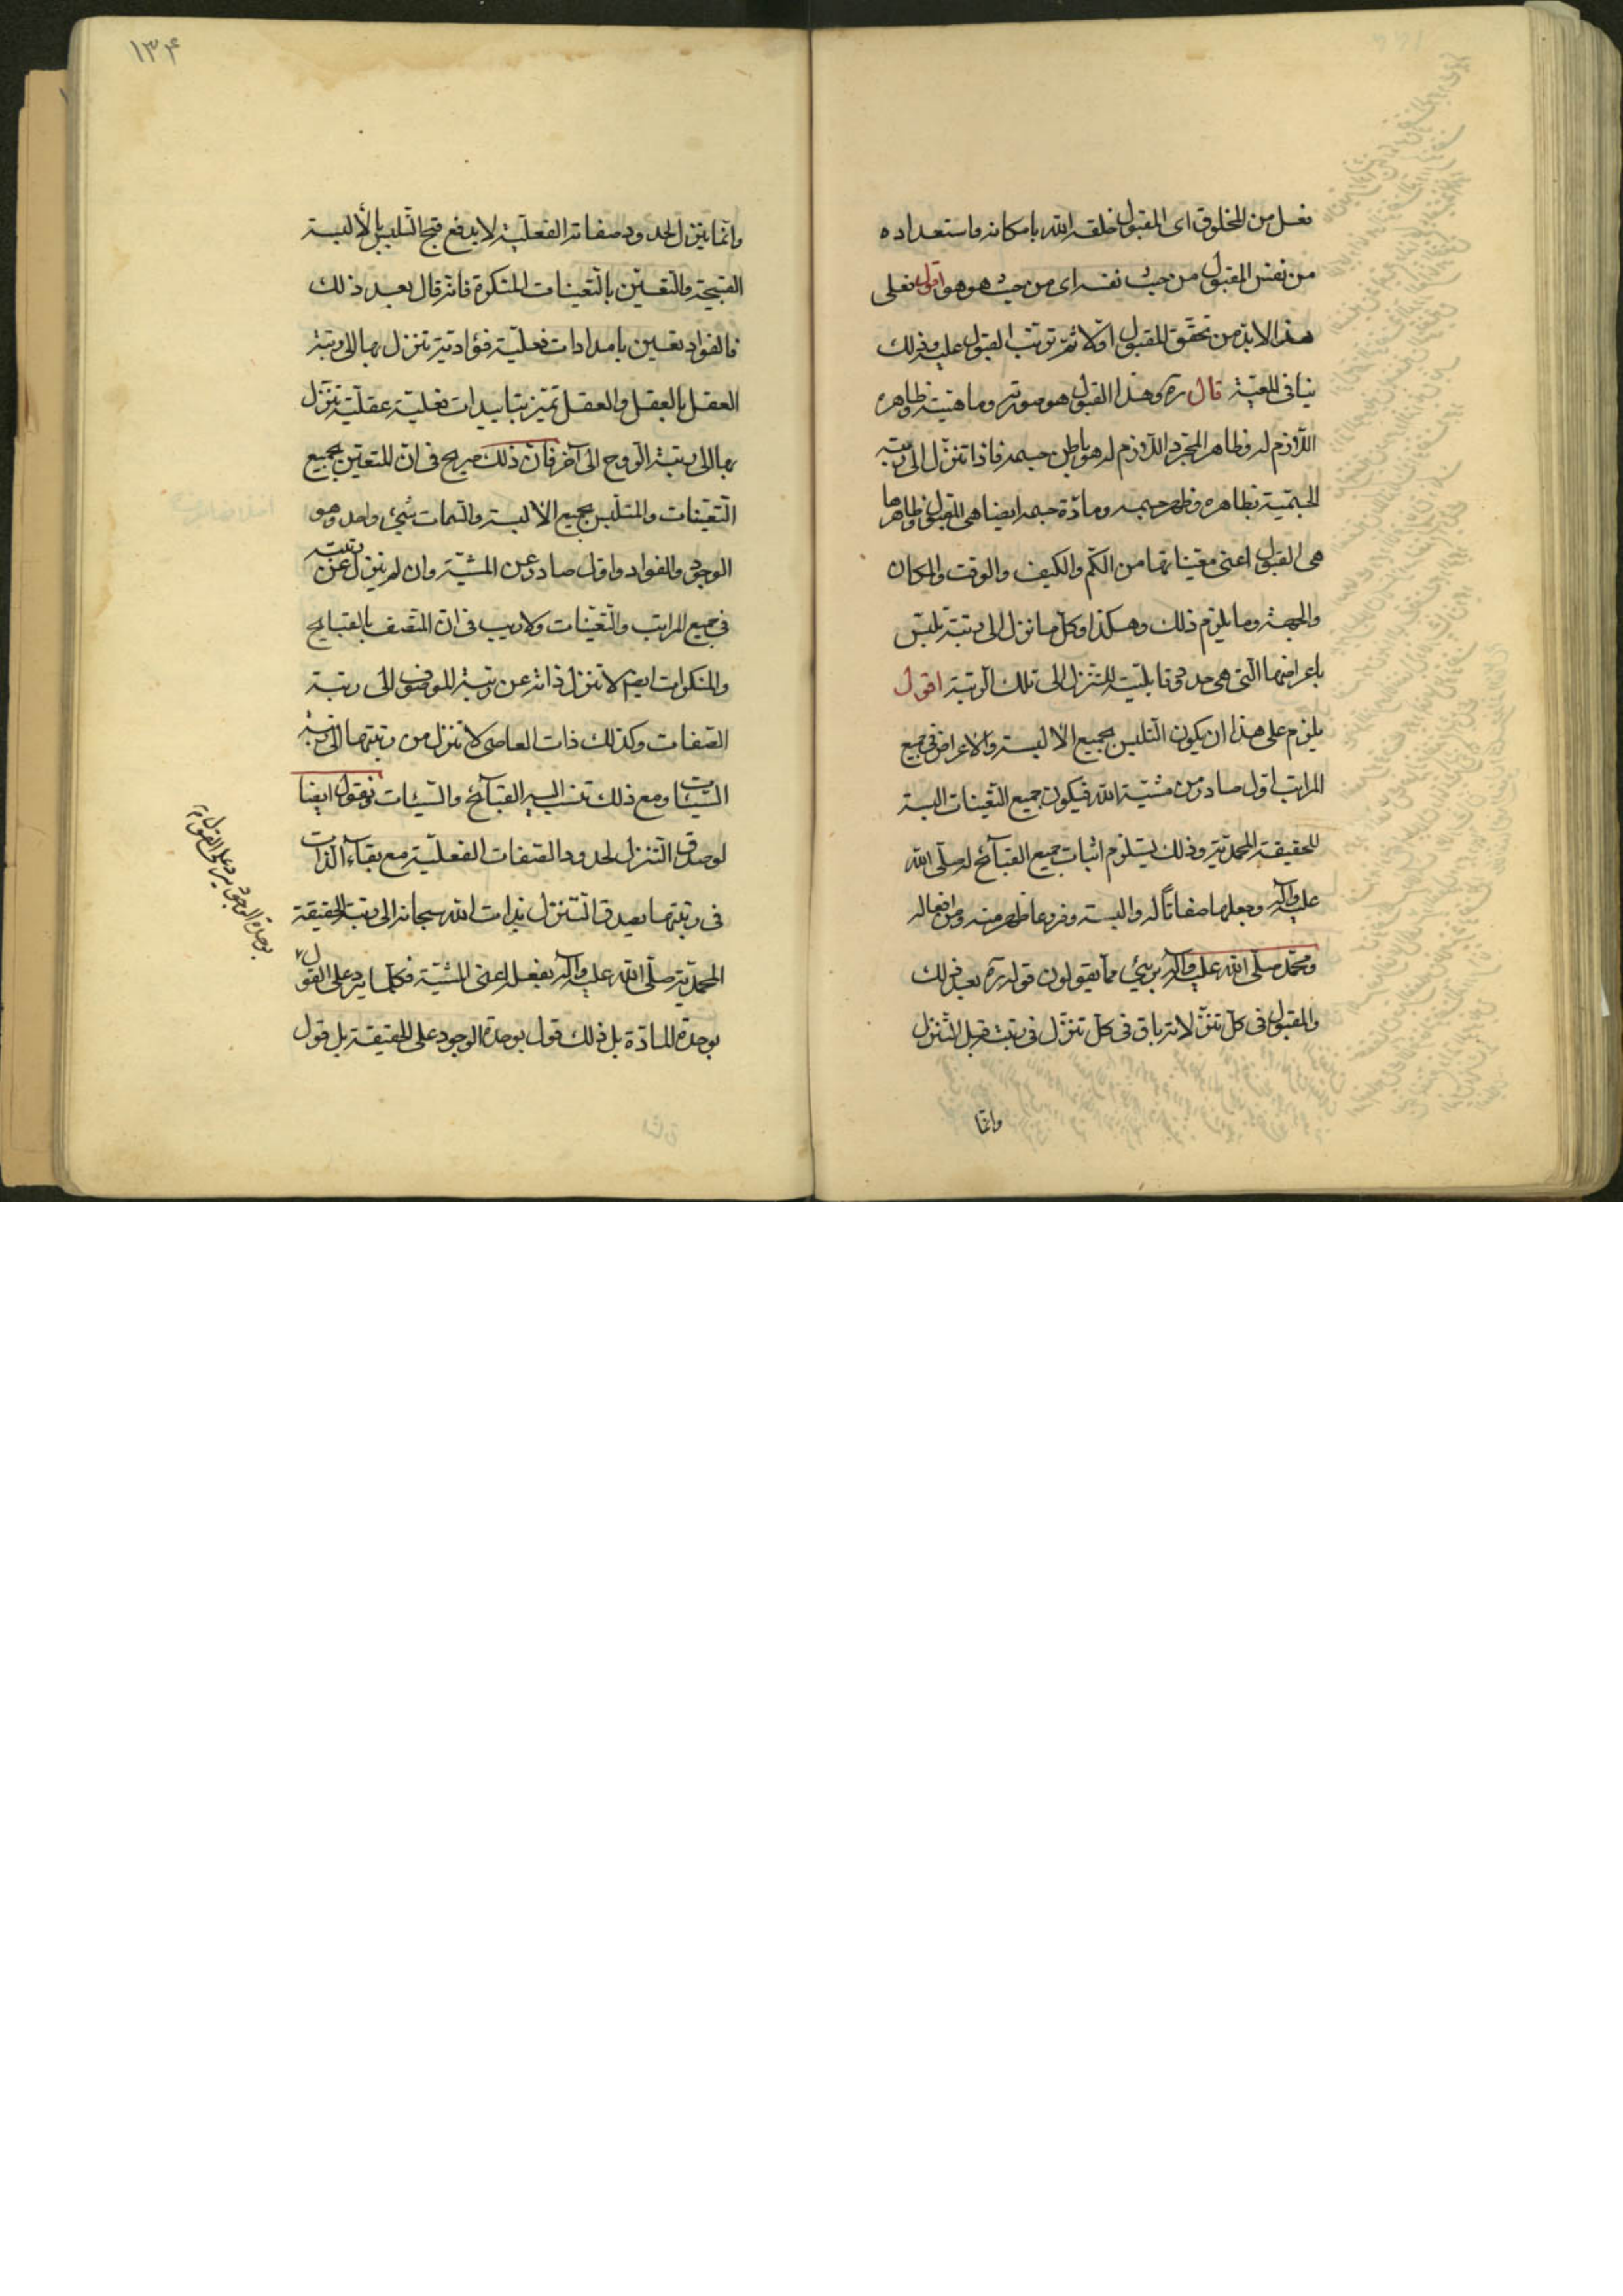 فعل من المخلوق ای المقبول خلقه الله بامکانه واستعداده
من نفس المقبول من حیث نفسه ای من حیث هو هو اقول فعلی
هذا لابد من تحقق المقبول اولا ثم ترتب القبول علیه وذلک
ینافی المعیة قال ره وهذا القبول هو صورته وماهیته وظاهره
اللازم له وظاهر المجرد اللازم له هو باطن جسمه فاذا تنزل الی رتبة
الجسمیة بظاهره وظهر جسمه ومادة جسمه ایضا هی المقبول وظاهرها
هی القبول اعنی معیناتها من الکم والکیف والوقت والمکان
والجهة وما یلزم ذلک وهکذا وکل ما نزل الی رتبة تلبس
باعراضها التی هی حدود قابلیته للتنزل الی تلک الرتبة اقول
یلزم علی هذا ان یکون المتلبس بجمیع الالبسة والاعراض فی جمیع
المراتب اول صادر من مشیة الله فیکون جمیع التعینات البسة
للحقیقة المحمدیة وذلک یستلزم اثبات جمیع القبآئح له صلی الله
علیه وآله وجعلها صفاتا له والبسة وفروعا ظهر منه ومن افعاله
ومحمد صلی الله علیه وآله بریء مما یقولون قوله ره بعد ذلک
والمقبول فی کل تنزلاته باق فی کل تنزل فی رتبة قبل التنزل
وانما
١٣۴
وانما یتنزل لحدود صفاته الفعلیة لا یدفع قبح التلبس بالالبسة
القبیحة والتعین بالتعینات المنکرة فانه قال بعد ذلک
فالفواد تعین بامدادات فعلیة فؤادیة تنزل بها الی رتبة
العقل بالعقل والعقل تمیز بتاییدات فعلیة عقلیة تنزل
بها الی رتبة الروح الی آخر فان ذلک صریح فی ان المتعین بجمیع
التعینات والمتلبس بجمیع الالبسة والسمات شیء واحد وهو
الوجود والفواد واول صادر عن المشیة وان لم یتنزل عن رتبته
فی جمیع المراتب والتعینات ولا ریب فی ان المتصف بالقبایح
والمنکرات ایضم لا تنزل ذاته عن رتبة الموصوف الی رتبة
الصفات وکذلک ذات العاصی لا تنزل من رتبتها الی رتبة
السیئات ومع ذلک تنسب الیه القبآئح والسیئات ونقول ایضا
لو صدق التنزل لحدود الصفات الفعلیة مع بقآء الذات
فی رتبتها یصدق التنزل لذات الله سبحانه الی رتبة الحقیقة
المحمدیة صلی الله علیه وآله بفعله اعنی المشیة فکلما یرد علی القول
بوحدة المادة بل ذلک قول بوحدة الوجود علی الحقیقة بل قول
بوحدة الوجود یرد علی القول